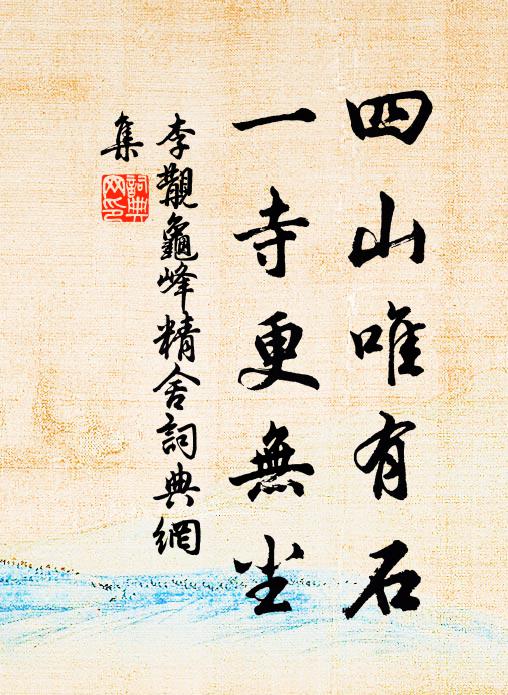 四山唯有石
一寺更無尘
李觏龜峰精舍詞典網
集
詞典
网印